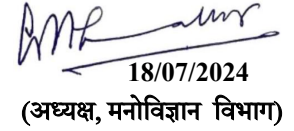 18/07/2024
(अध्यक्ष, मनोविज्ञान विभाग)